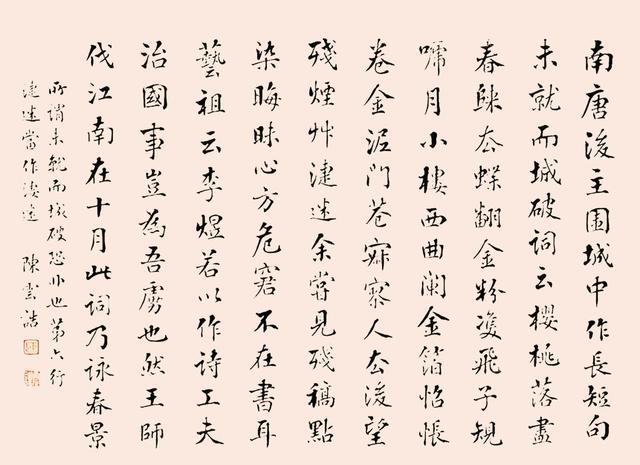 南唐後主圍城中作長短句
未就而城破詞云櫻桃落盡
春歸去蝶翻金粉雙飛子規
啼月小樓西曲闌金箔惆悵
卷金泥門巷寂寥人去後望
殘煙艸迷余嘗見殘稿點
染晦昧心方危窘不在書耳
藝祖云李煜若以作詩工夫
治國事豈為吾虜也然王師
伐江南在十月此詞乃詠春景
所謂未就而城破恐非也第六行
迷當作淒迷 陳雲誥